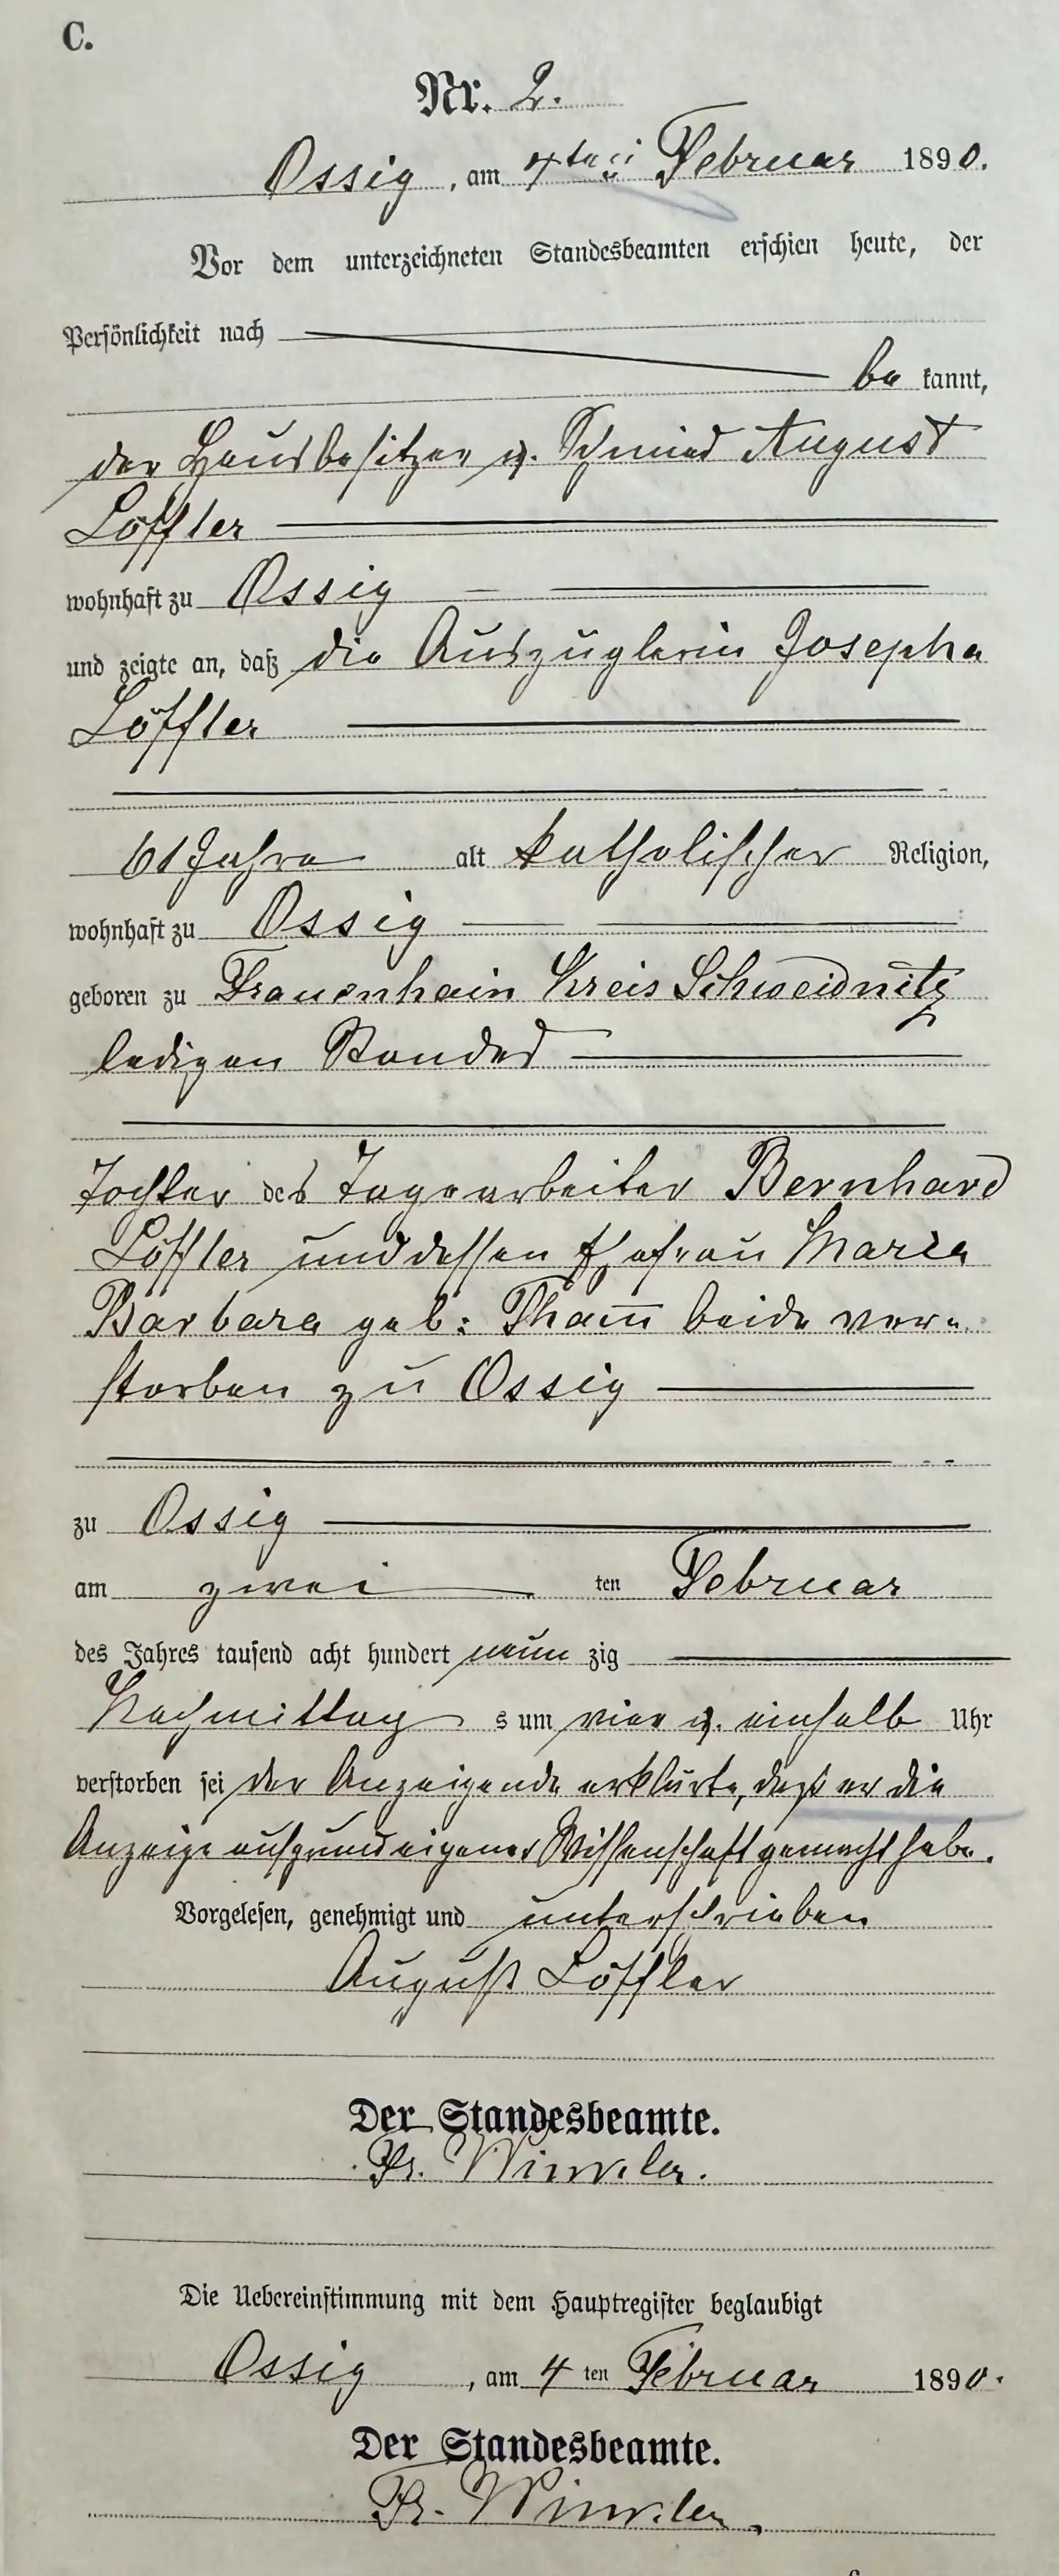 C.
Nr. 2.
Ossig, am 4ten Februar 1890.
Vor dem unterzeichneten Standesbeamten erschien heute, der
Persönlichkeit nach
be kannt,
der Hausbesitzer u. Schmied August
Löffler
wohnhaft zu Ossig
und zeigte an, daß die Auszüglerin Josepha
Löffler
61 Jahre alt katholischer Religion,
wohnhaft zu Ossig
geboren zu Frauenhain Kreis Schweidnitz
ledigen Standes
Tochter des Tagearbeiter Bernhard
Löffler und dessen Ehefrau Maria
Barbara geb: Tham̄ beide ver-
storben zu Ossig
zu Ossig
am zwei ten Februar
des Jahres tausend acht hundert neun zig
Nachmittag s um vier u. einhalb Uhr
verstorben sei der Anzeigende erklärte, daß er die
Anzeige aufgrund eigener Wissenschaft gemacht habe.
Vorgelesen, genehmigt und unterschrieben
August Löffler
Der Standesbeamte.
Fr. Winkler.
Die Uebereinstimmung mit dem Hauptregister beglaubigt
Ossig, am 4 ten Februar 1890.
Der Standesbeamte.
Fr. Winkler.